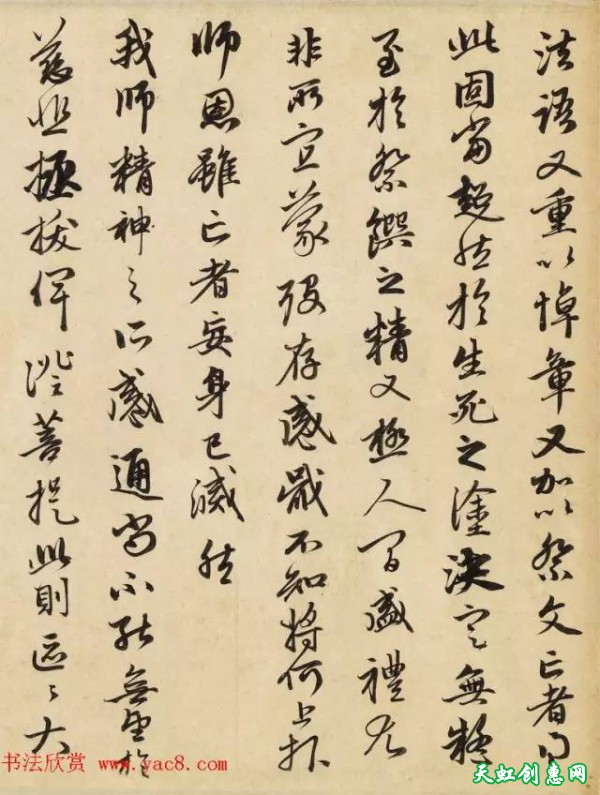 法語又重以悼章又加以祭文亡者得
此固當超然於生死之塗決定無疑
至於祭饌之精又極人間盛禮尤
非所宜蒙歿存感戢不知將何上報
師恩雖亡者妄身已滅然
我師精神之所感通尚不能無望於
慈悲拯拔俾證菩提此則區〻大
书法欣赏 www.yac8.com
天虹创惠网